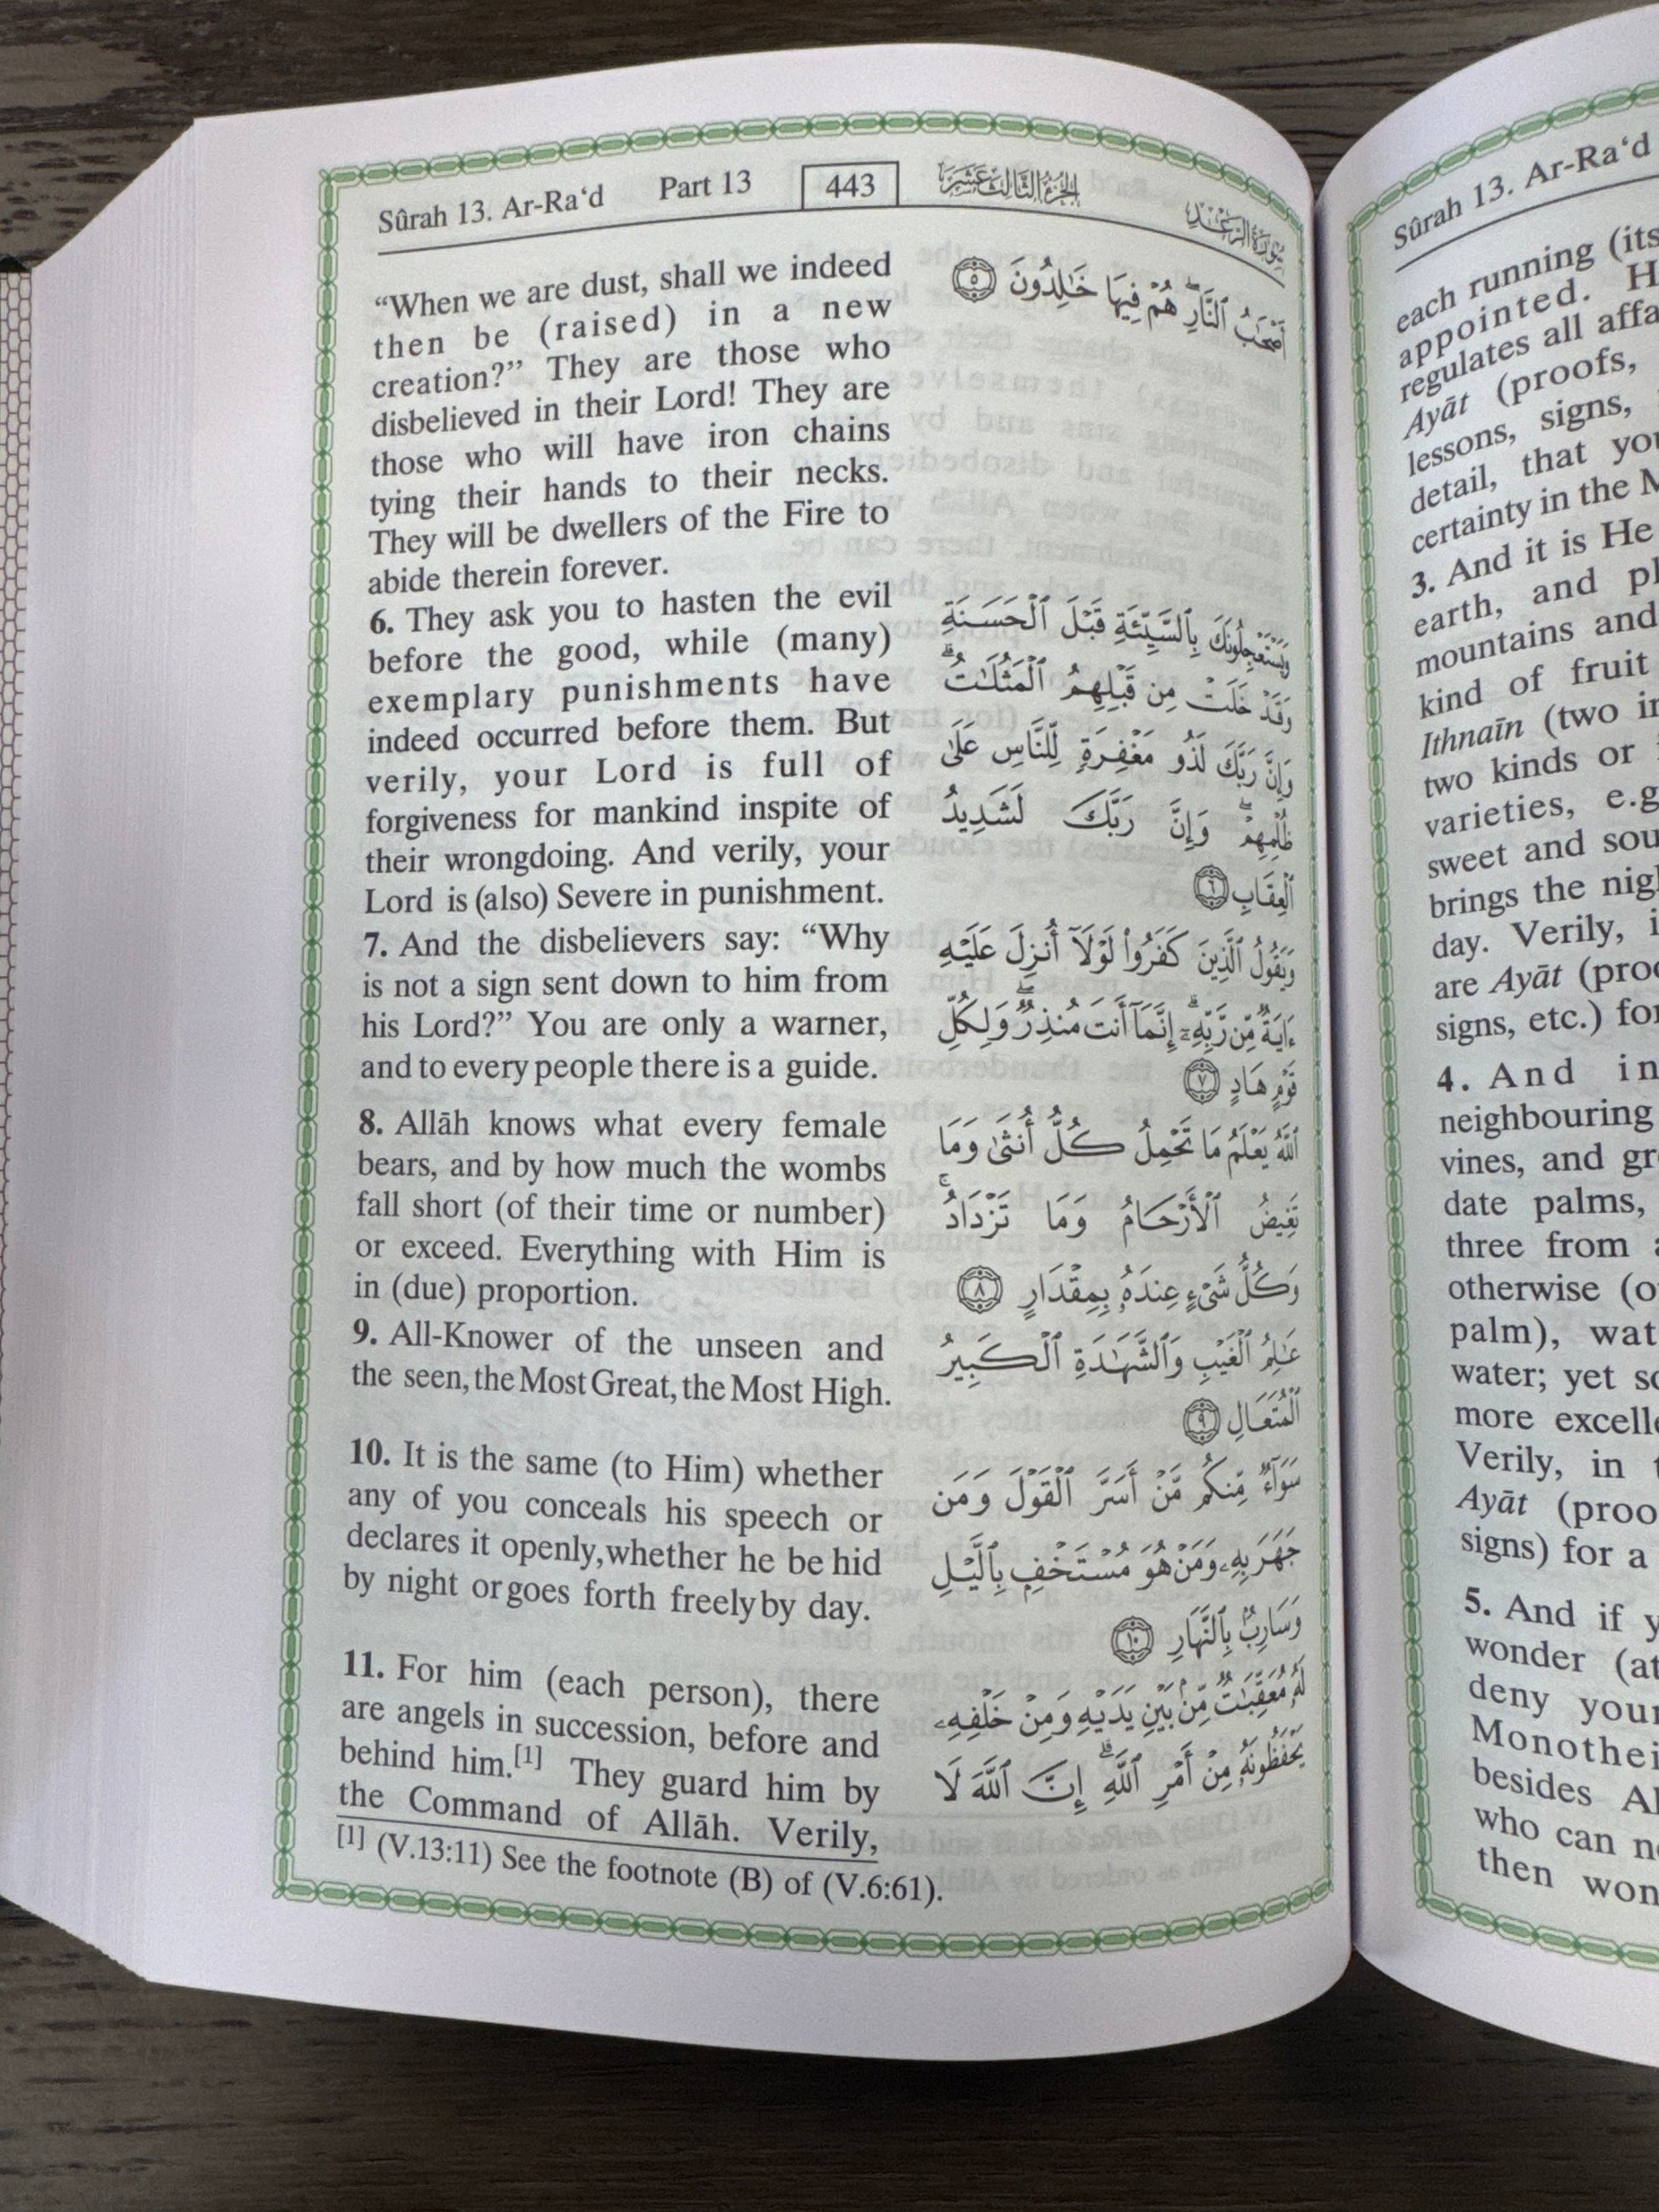 Sûrah 13. Ar-Ra‘d Part 13 443 الجزء الثالث عشر سورة الرعد
“When we are dust, shall we indeed
then be (raised) in a new
creation?” They are those who
disbelieved in their Lord! They are
those who will have iron chains
tying their hands to their necks.
They will be dwellers of the Fire to
abide therein forever.
6. They ask you to hasten the evil
before the good, while (many)
exemplary punishments have
indeed occurred before them. But
verily, your Lord is full of
forgiveness for mankind inspite of
their wrongdoing. And verily, your
Lord is (also) Severe in punishment.
7. And the disbelievers say: “Why
is not a sign sent down to him from
his Lord?” You are only a warner,
and to every people there is a guide.
8. Allāh knows what every female
bears, and by how much the wombs
fall short (of their time or number)
or exceed. Everything with Him is
in (due) proportion.
9. All-Knower of the unseen and
the seen, the Most Great, the Most High.
10. It is the same (to Him) whether
any of you conceals his speech or
declares it openly, whether he be hid
by night or goes forth freely by day.
11. For him (each person), there
are angels in succession, before and
behind him.[1] They guard him by
the Command of Allāh. Verily,
أَصْحَٰبُ ٱلنَّارِ ۖ هُمْ فِيهَا خَٰلِدُونَ ٥
وَيَسْتَعْجِلُونَكَ بِٱلسَّيِّئَةِ قَبْلَ ٱلْحَسَنَةِ
وَقَدْ خَلَتْ مِن قَبْلِهِمُ ٱلْمَثُلَٰتُ ۗ
وَإِنَّ رَبَّكَ لَذُو مَغْفِرَةٍ لِّلنَّاسِ عَلَىٰ
ظُلْمِهِمْ ۖ وَإِنَّ رَبَّكَ لَشَدِيدُ
ٱلْعِقَابِ ٦
وَيَقُولُ ٱلَّذِينَ كَفَرُوا۟ لَوْلَآ أُنزِلَ عَلَيْهِ
ءَايَةٌ مِّن رَّبِّهِۦٓ ۗ إِنَّمَآ أَنتَ مُنذِرٌ ۖ وَلِكُلِّ
قَوْمٍ هَادٍ ٧
ٱللَّهُ يَعْلَمُ مَا تَحْمِلُ كُلُّ أُنثَىٰ وَمَا
تَغِيضُ ٱلْأَرْحَامُ وَمَا تَزْدَادُ ۖ
وَكُلُّ شَىْءٍ عِندَهُۥ بِمِقْدَارٍ ٨
عَٰلِمُ ٱلْغَيْبِ وَٱلشَّهَٰدَةِ ٱلْكَبِيرُ
ٱلْمُتَعَالِ ٩
سَوَآءٌ مِّنكُم مَّنْ أَسَرَّ ٱلْقَوْلَ وَمَن
جَهَرَ بِهِۦ وَمَنْ هُوَ مُسْتَخْفٍۭ بِٱلَّيْلِ
وَسَارِبٌۢ بِٱلنَّهَارِ ١٠
لَهُۥ مُعَقِّبَٰتٌ مِّنۢ بَيْنِ يَدَيْهِ وَمِنْ خَلْفِهِۦ
يَحْفَظُونَهُۥ مِنْ أَمْرِ ٱللَّهِ ۗ إِنَّ ٱللَّهَ لَا
[1] (V.13:11) See the footnote (B) of (V.6:61).
Sûrah 13. Ar-Ra‘d
each running (its
appointed.
regulates all
Ayāt (proofs,
lessons, signs,
detail, that
certainty in the
3. And it is He
earth, and
mountains and
kind of fruit
Ithnaīn (two
two kinds or
varieties,
sweet and
brings the
day. Verily,
are Ayāt
signs, etc.)
4. And in
neighbouring
vines, and
date palms,
three from
otherwise
palm),
water; yet
more
Verily, in
Ayāt
signs) for a
5. And if
wonder
deny
besides
who can
then